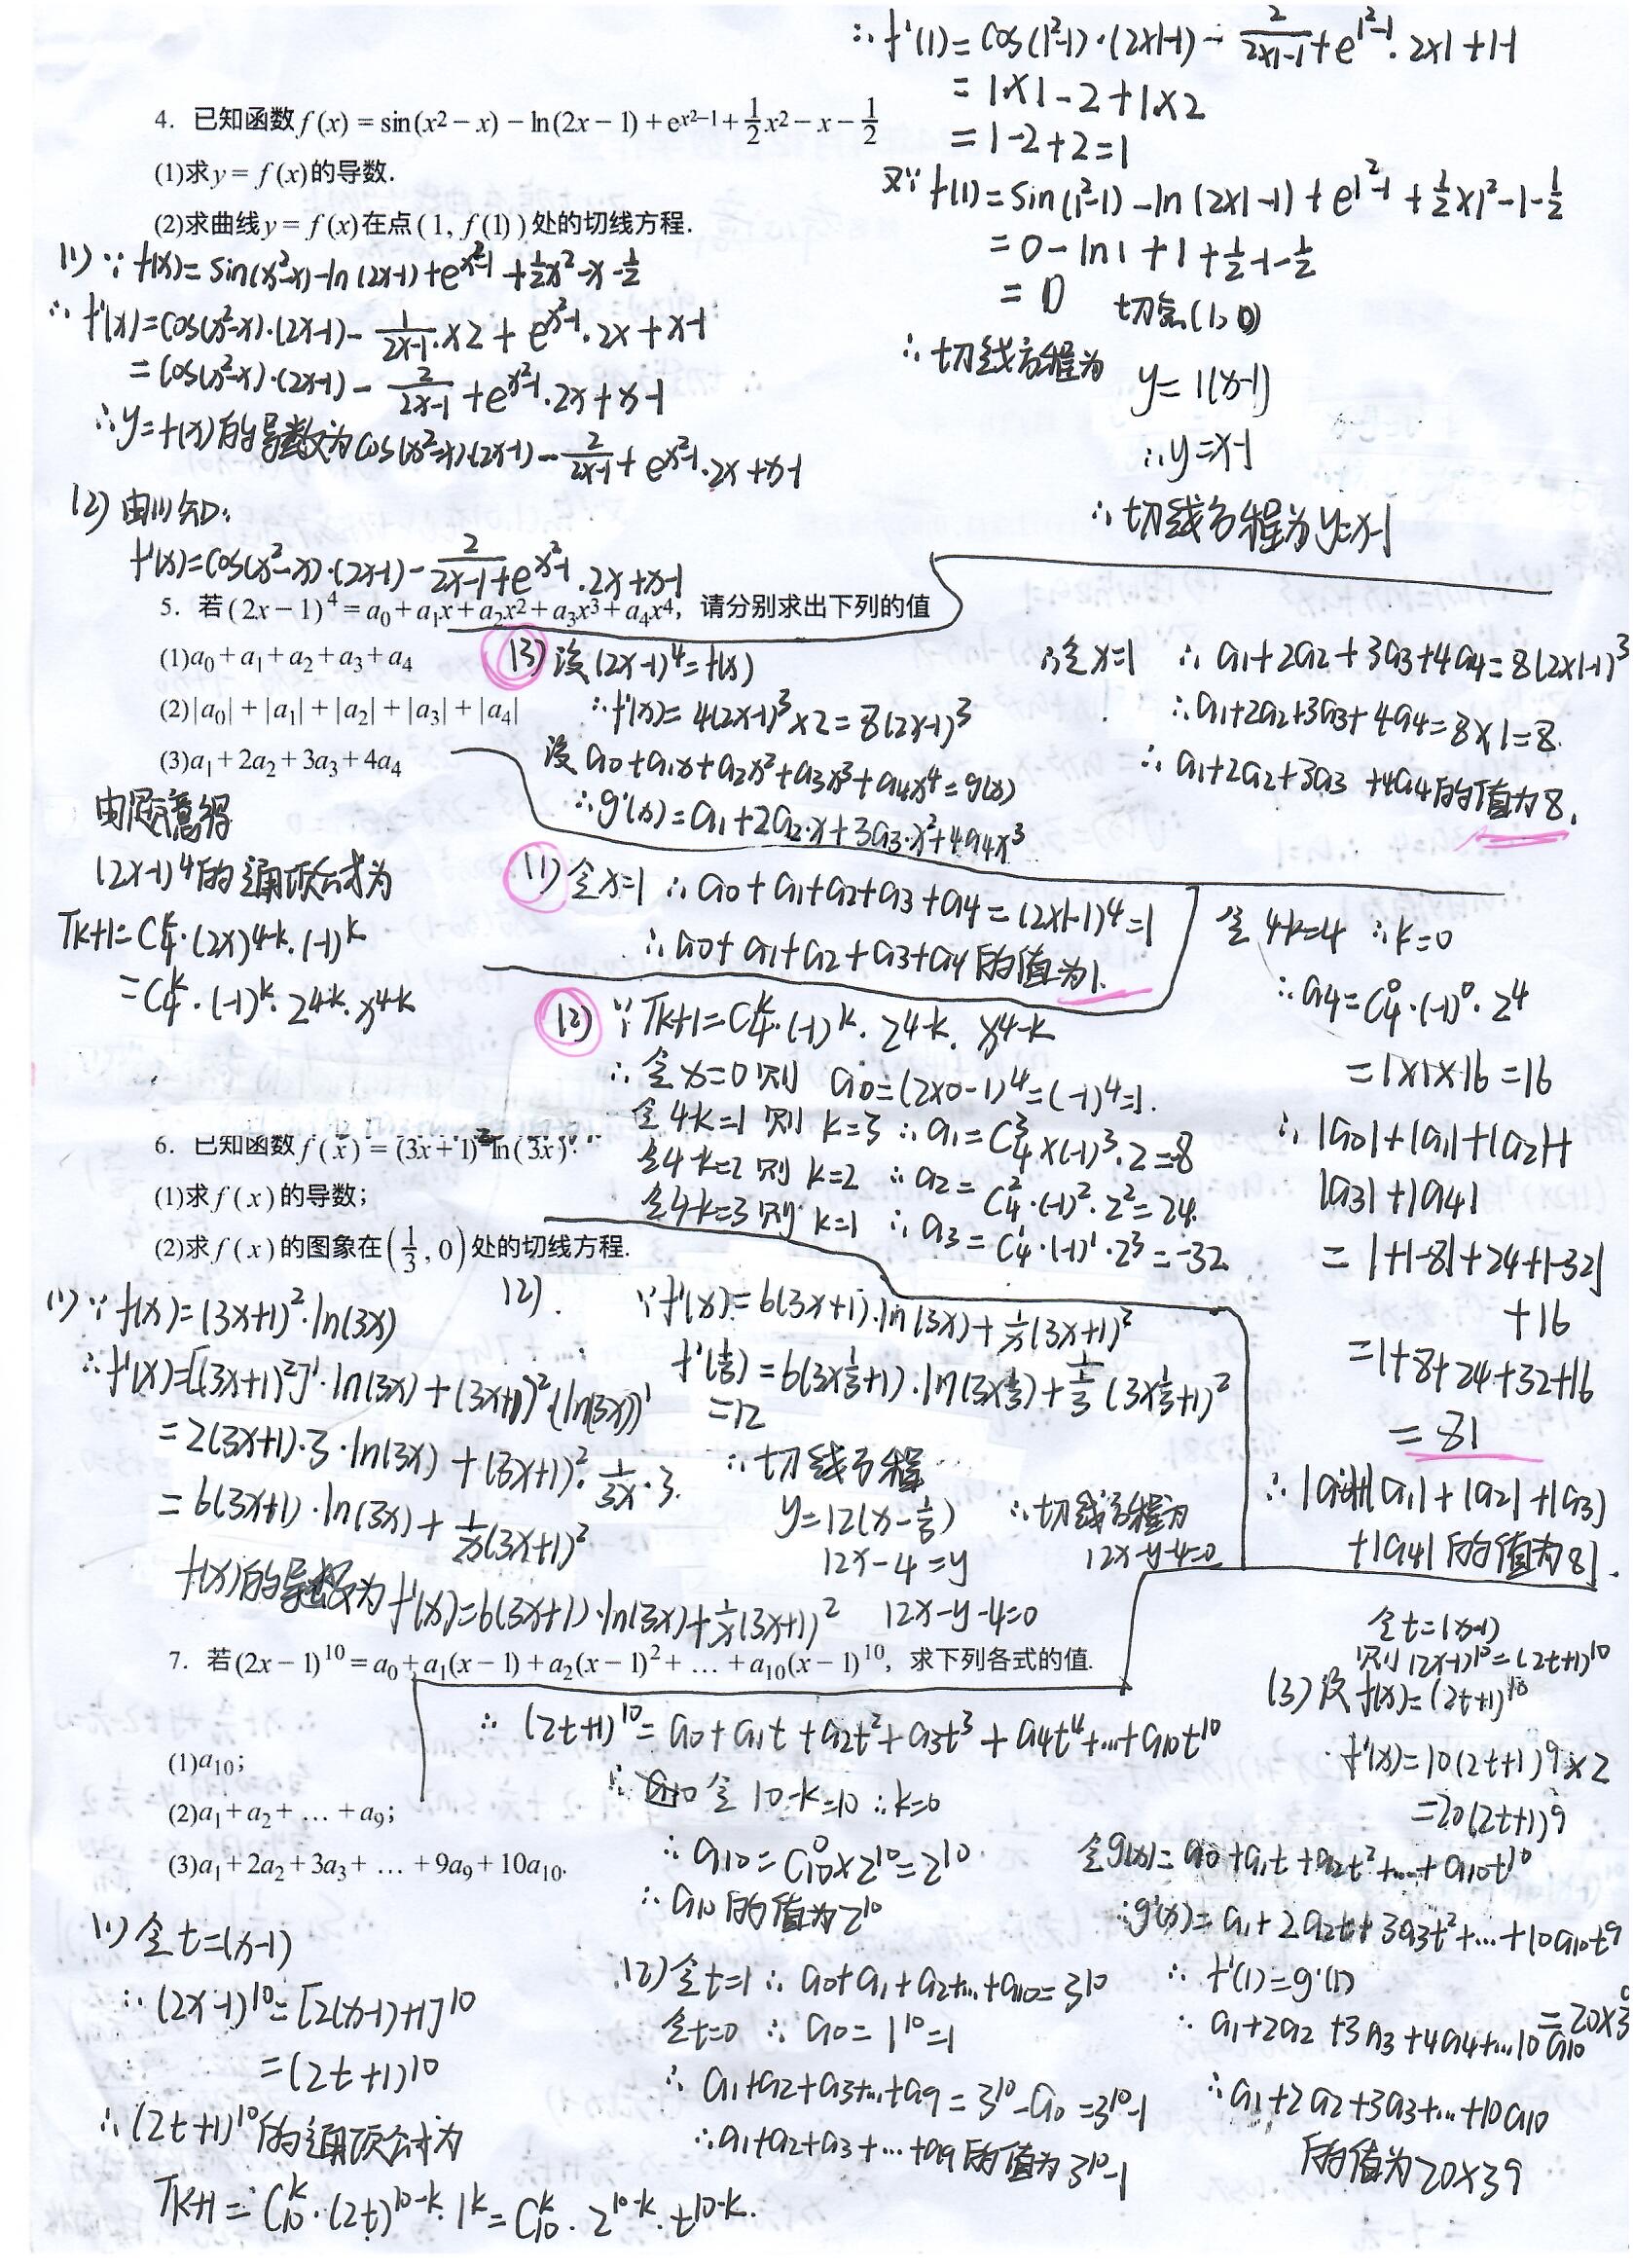 4. 已知函数f(x)=sin(x²−x)−ln(2x−1)+e^{x²−1}+\frac{1}{2}x²−x−\frac{1}{2}
(1)求y=f(x)的导数.
(2)求曲线y=f(x)在点(1, f(1))处的切线方程.
(1) ∵ f(x)=sin(x²-x)-ln(2x-1)+e^{x²-1}+\frac{1}{2}x²-x-\frac{1}{2}
∴ f'(x)=cos(x²-x)·(2x-1)-\frac{1}{2x-1}·×2+e^{x²-1}·2x+x-1
=cos(x²-x)·(2x-1)-\frac{2}{2x-1}+e^{x²-1}·2x+x-1
∴y=f(x)的导数为cos(x²-x)·(2x-1)-\frac{2}{2x-1}+e^{x²-1}·2x+x-1
(2) 由(1)知:
f'(x)=cos(x²-x)·(2x-1)-\frac{2}{2x-1}+e^{x²-1}·2x+x-1
∴f'(1)=cos(1²-1)·(2×1-1)-\frac{2}{2×1-1}+e^{1²-1}·2×1+1-1
=1×1-2+1×2
=1-2+2=1
又∵f(1)=sin(1²-1)-ln(2×1-1)+e^{1²-1}+\frac{1}{2}×1²-1-\frac{1}{2}
=0-ln1+1+\frac{1}{2}-1-\frac{1}{2}
=0 切点(1,0)
∴切线方程为
y=1(x-1)
∴y=x-1
∴切线方程为y=x-1
5. 若(2x−1)⁴=a₀+a₁x+a₂x²+a₃x³+a₄x⁴, 请分别求出下列的值
(1)a₀+a₁+a₂+a₃+a₄
(2)|a₀|+|a₁|+|a₂|+|a₃|+|a₄|
(3)a₁+2a₂+3a₃+4a₄
由题意得
(2x-1)⁴的通项公式为
T_{k+1}=C_4^k·(2x)^{4-k}·(-1)^k
=C_4^k·(-1)^k·2^{4-k}·x^{4-k}
(3) 设(2x-1)⁴=f(x)
∴f'(x)=4(2x-1)³×2=8(2x-1)³
设a₀+a₁x+a₂x²+a₃x³+a₄x⁴=g(x)
∴g'(x)=a₁+2a₂·x+3a₃·x²+4a₄x³
∴令x=1 ∴a₁+2a₂+3a₃+4a₄=8(2×1-1)³
∴a₁+2a₂+3a₃+4a₄=8×1=8.
∴a₁+2a₂+3a₃+4a₄的值为8.
(1) 令x=1 ∴a₀+a₁+a₂+a₃+a₄=(2×1-1)⁴=1
∴a₀+a₁+a₂+a₃+a₄的值为1.
(2) ∵T_{k+1}=C_4^k·(-1)^k·2^{4-k}·x^{4-k}
∴令x=0则 a₀=(2×0-1)⁴=(-1)⁴=1.
令4-k=1则k=3 ∴a₁=C_4^3×(-1)³·2=-8
令4-k=2则k=2 ∴a₂=C_4^2·(-1)²·2²=24.
令4-k=3则k=1 ∴a₃=C_4^1·(-1)¹·2³=-32
令4-k=4 ∴k=0
∴a₄=C_4^0·(-1)⁰·2⁴
=1×1×16=16
∴|a₀|+|a₁|+|a₂|+
|a₃|+|a₄|
=1+|-8|+24+|-32|
+16
=1+8+24+32+16
=81
∴|a₀|+|a₁|+|a₂|+|a₃|
+|a₄|的值为81.
6. 已知函数f(x)=(3x+1)²ln(3x).
(1)求f(x)的导数;
(2)求f(x)的图象在(\frac{1}{3}, 0)处的切线方程.
(1)∵f(x)=(3x+1)²·ln(3x)
∴f'(x)=[(3x+1)²]'·ln(3x)+(3x+1)²·(ln(3x))'
=2(3x+1)·3·ln(3x)+(3x+1)²·\frac{1}{3x}·3.
=6(3x+1)·ln(3x)+\frac{1}{x}(3x+1)²
f(x)的导数为f'(x)=6(3x+1)·ln(3x)+\frac{1}{x}(3x+1)²
(2). ∵f'(x)=6(3x+1)·ln(3x)+\frac{1}{x}(3x+1)²
f'(\frac{1}{3})=6(3×\frac{1}{3}+1)·ln(3×\frac{1}{3})+\frac{1}{\frac{1}{3}}(3×\frac{1}{3}+1)²
=12
∴切线方程
y=12(x-\frac{1}{3})
12x-4=y
12x-y-4=0
∴切线方程为
12x-y-4=0
7. 若(2x−1)¹⁰=a₀+a₁(x−1)+a₂(x−1)²+…+a₁₀(x−1)¹⁰, 求下列各式的值.
(1)a₁₀;
(2)a₁+a₂+…+a₉;
(3)a₁+2a₂+3a₃+…+9a₉+10a₁₀.
(1) 令t=(x-1)
∴(2x-1)¹⁰=[2(x-1)+1]¹⁰
=(2t+1)¹⁰
∴(2t+1)¹⁰的通项公式为
T_{k+1}=C_{10}^k·(2t)^{10-k}·1^k=C_{10}^k·2^{10-k}·t^{10-k}.
∴(2t+1)¹⁰=a₀+a₁t+a₂t²+a₃t³+a₄t⁴+…+a₁₀t¹⁰
∴令10-k=10 ∴k=0
∴a₁₀=C_{10}^0×2¹⁰=2¹⁰.
∴a₁₀的值为2¹⁰
(2)令t=1 ∴a₀+a₁+a₂+…+a₁₀=3¹⁰
令t=0 ∴a₀=1¹⁰=1
∴a₁+a₂+a₃+…+a₉=3¹⁰-a₀=3¹⁰-1
∴a₁+a₂+a₃+…+a₉的值为3¹⁰-1
令t=(x-1)
则(2x-1)¹⁰=(2t+1)¹⁰
(3)设f(x)=(2t+1)¹⁰
f'(x)=10(2t+1)⁹×2
=20(2t+1)⁹
令g(x)=a₀+a₁t+a₂t²+…+a₁₀t¹⁰
∴g'(x)=a₁+2a₂t+3a₃t²+…+10a₁₀t⁹
∴f'(1)=g'(1)
∴a₁+2a₂+3a₃+4a₄+…10a₁₀=20×3⁹
∴a₁+2a₂+3a₃+…+10a₁₀
的值为20×3⁹